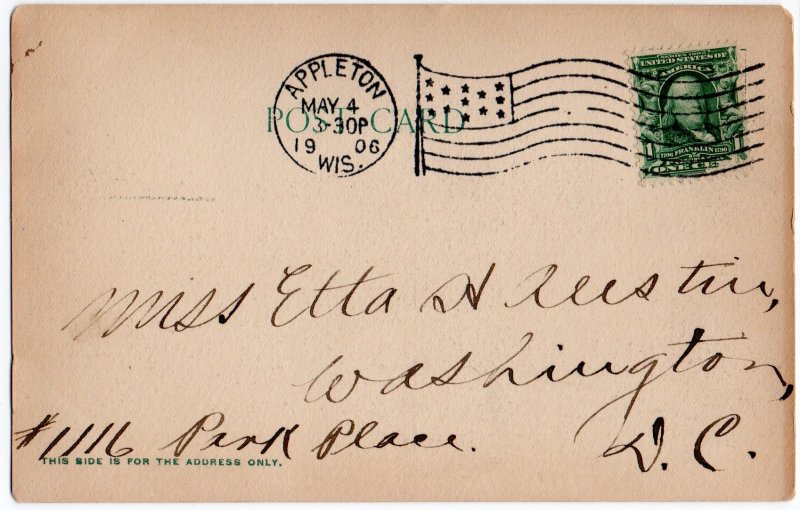 APPLETON
MAY 4
3-30P
19 06
WIS.
POST CARD
SERIES 1902
UNITED STATES OF
AMERICA
1706 FRANKLIN 1790
1
Miss Etta H Austin,
Washington,
#1116 Park Place. D.C.
THIS SIDE IS FOR THE ADDRESS ONLY.